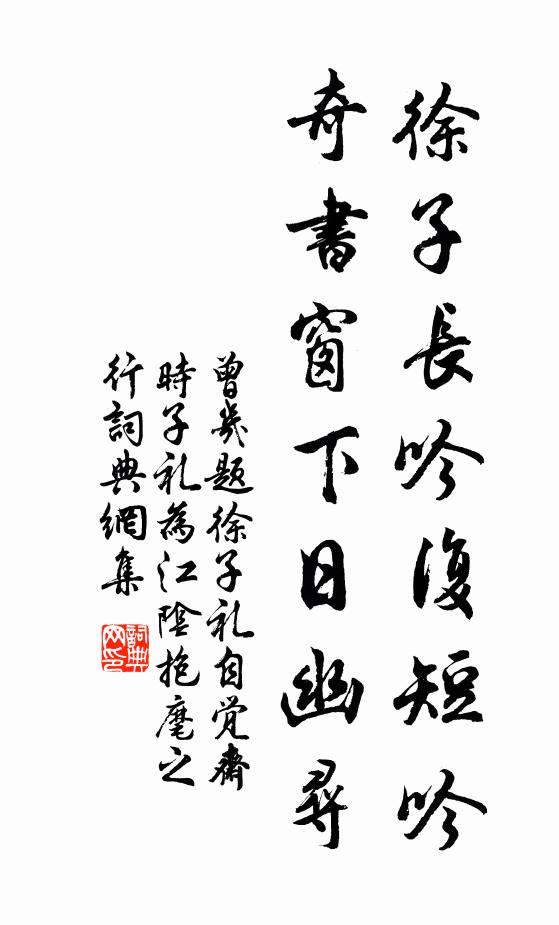 徐子長吟復短吟
奇書窗下日幽尋
曾幾題徐子礼自觉齋
時子礼為江陰抱麾之
行詞典網集
詞典网印